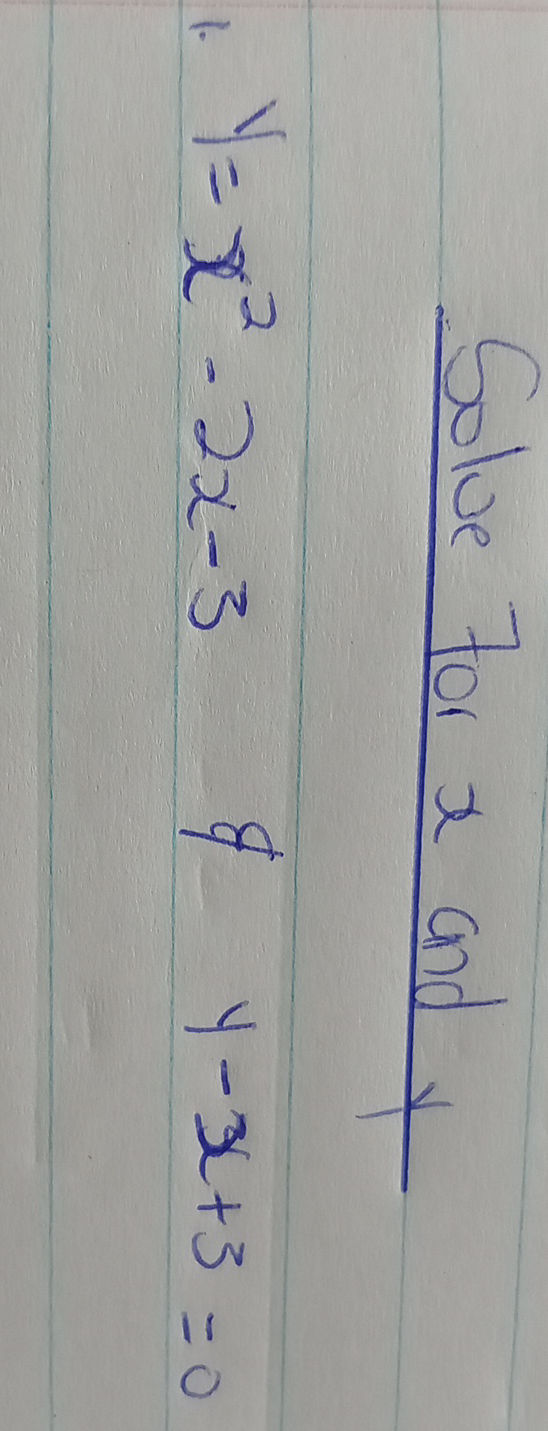 Solve For x and y
1. y = x² - 2x - 3 & y - x + 3 = 0